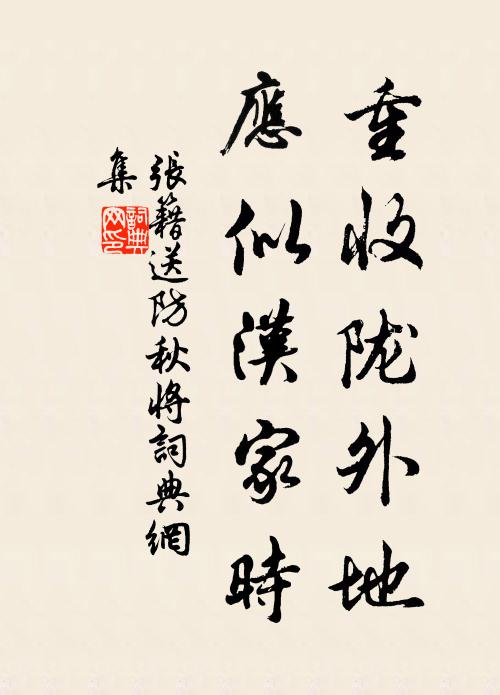 重收陇外地
應似漢家時
張籍送防秋將詞典網
集
詞典
网印